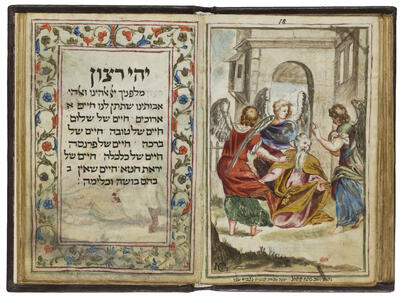 יהי רצון
מלפניך יי אלהינו ואלהי
אבותינו שתתן לנו חיים א
ארוכים חיים של שלום
חיים של טובה חיים של
ברכה חיים של פרנסה
חיים של כלכלה חיים של
יראת חטא חיים שאין ב
בהם בושה וכלימה :
18